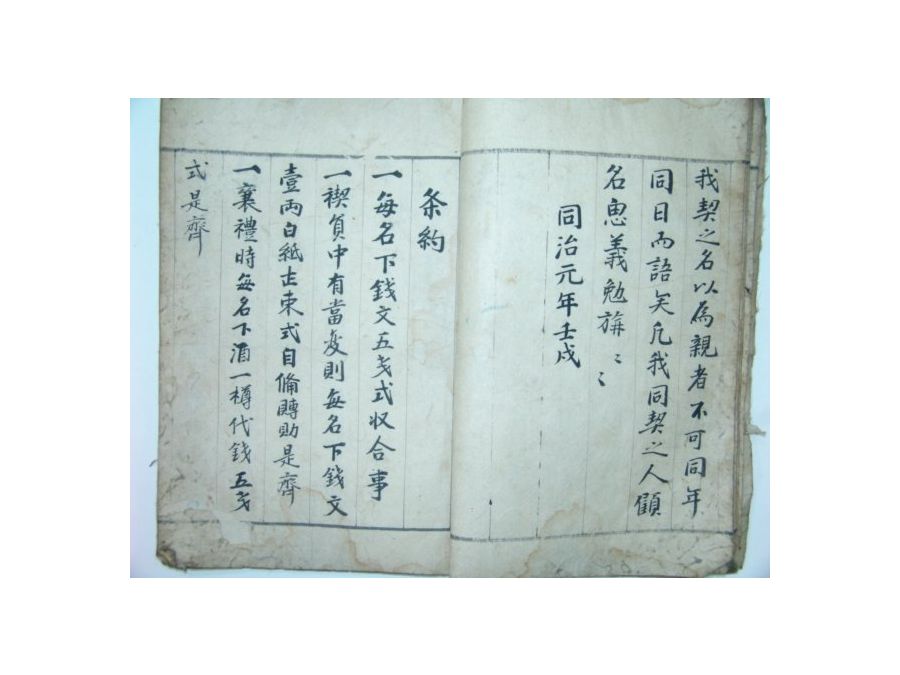 我契之名以為親者不可同年
同日而語矣凡我同契之人顧
名思義勉旃〻〻
同治元年壬戌
条約
一每名下錢文五戔式収合事
一禊員中有當变則每名下錢文
壹両白紙壱束式自備賻助是齊
一襄禮時每名下酒一樽代錢五戔
式是齊